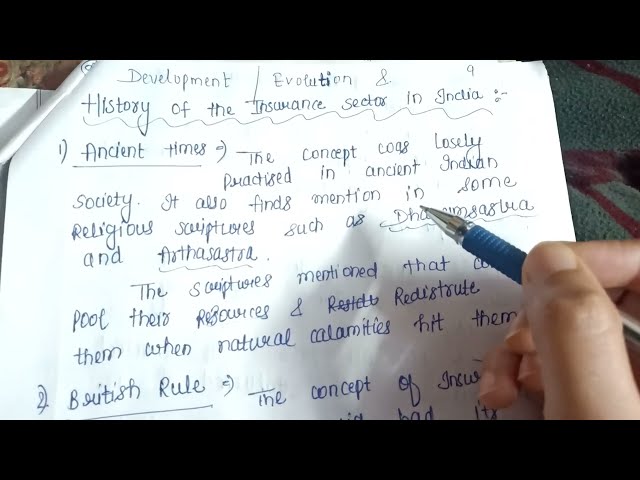 Development / Evolution & 9
History of the Insurance sector in India :-
1) Ancient times => The concept was losely
Practised in ancient Indian
society. It also finds mention in some
Religious scriptures such as
and Arthasastra.
The scriptures mentioned that
Pool their Resources & Redistrute
them when natural calamities hit them
2) British Rule => The concept of
had its